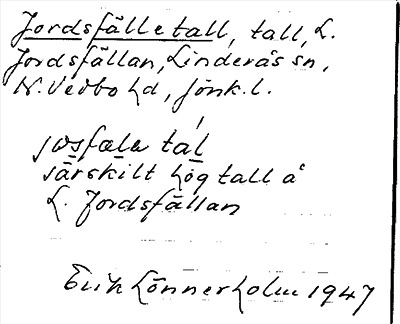 Jordsfälletall, tall, L.
Jordsfällan, Linderås sn,
N. Vedbo hd, Jönk. l.
josfælə tal
särskilt hög tall å
L. Jordsfällan
Erik Lönnerholm 1947